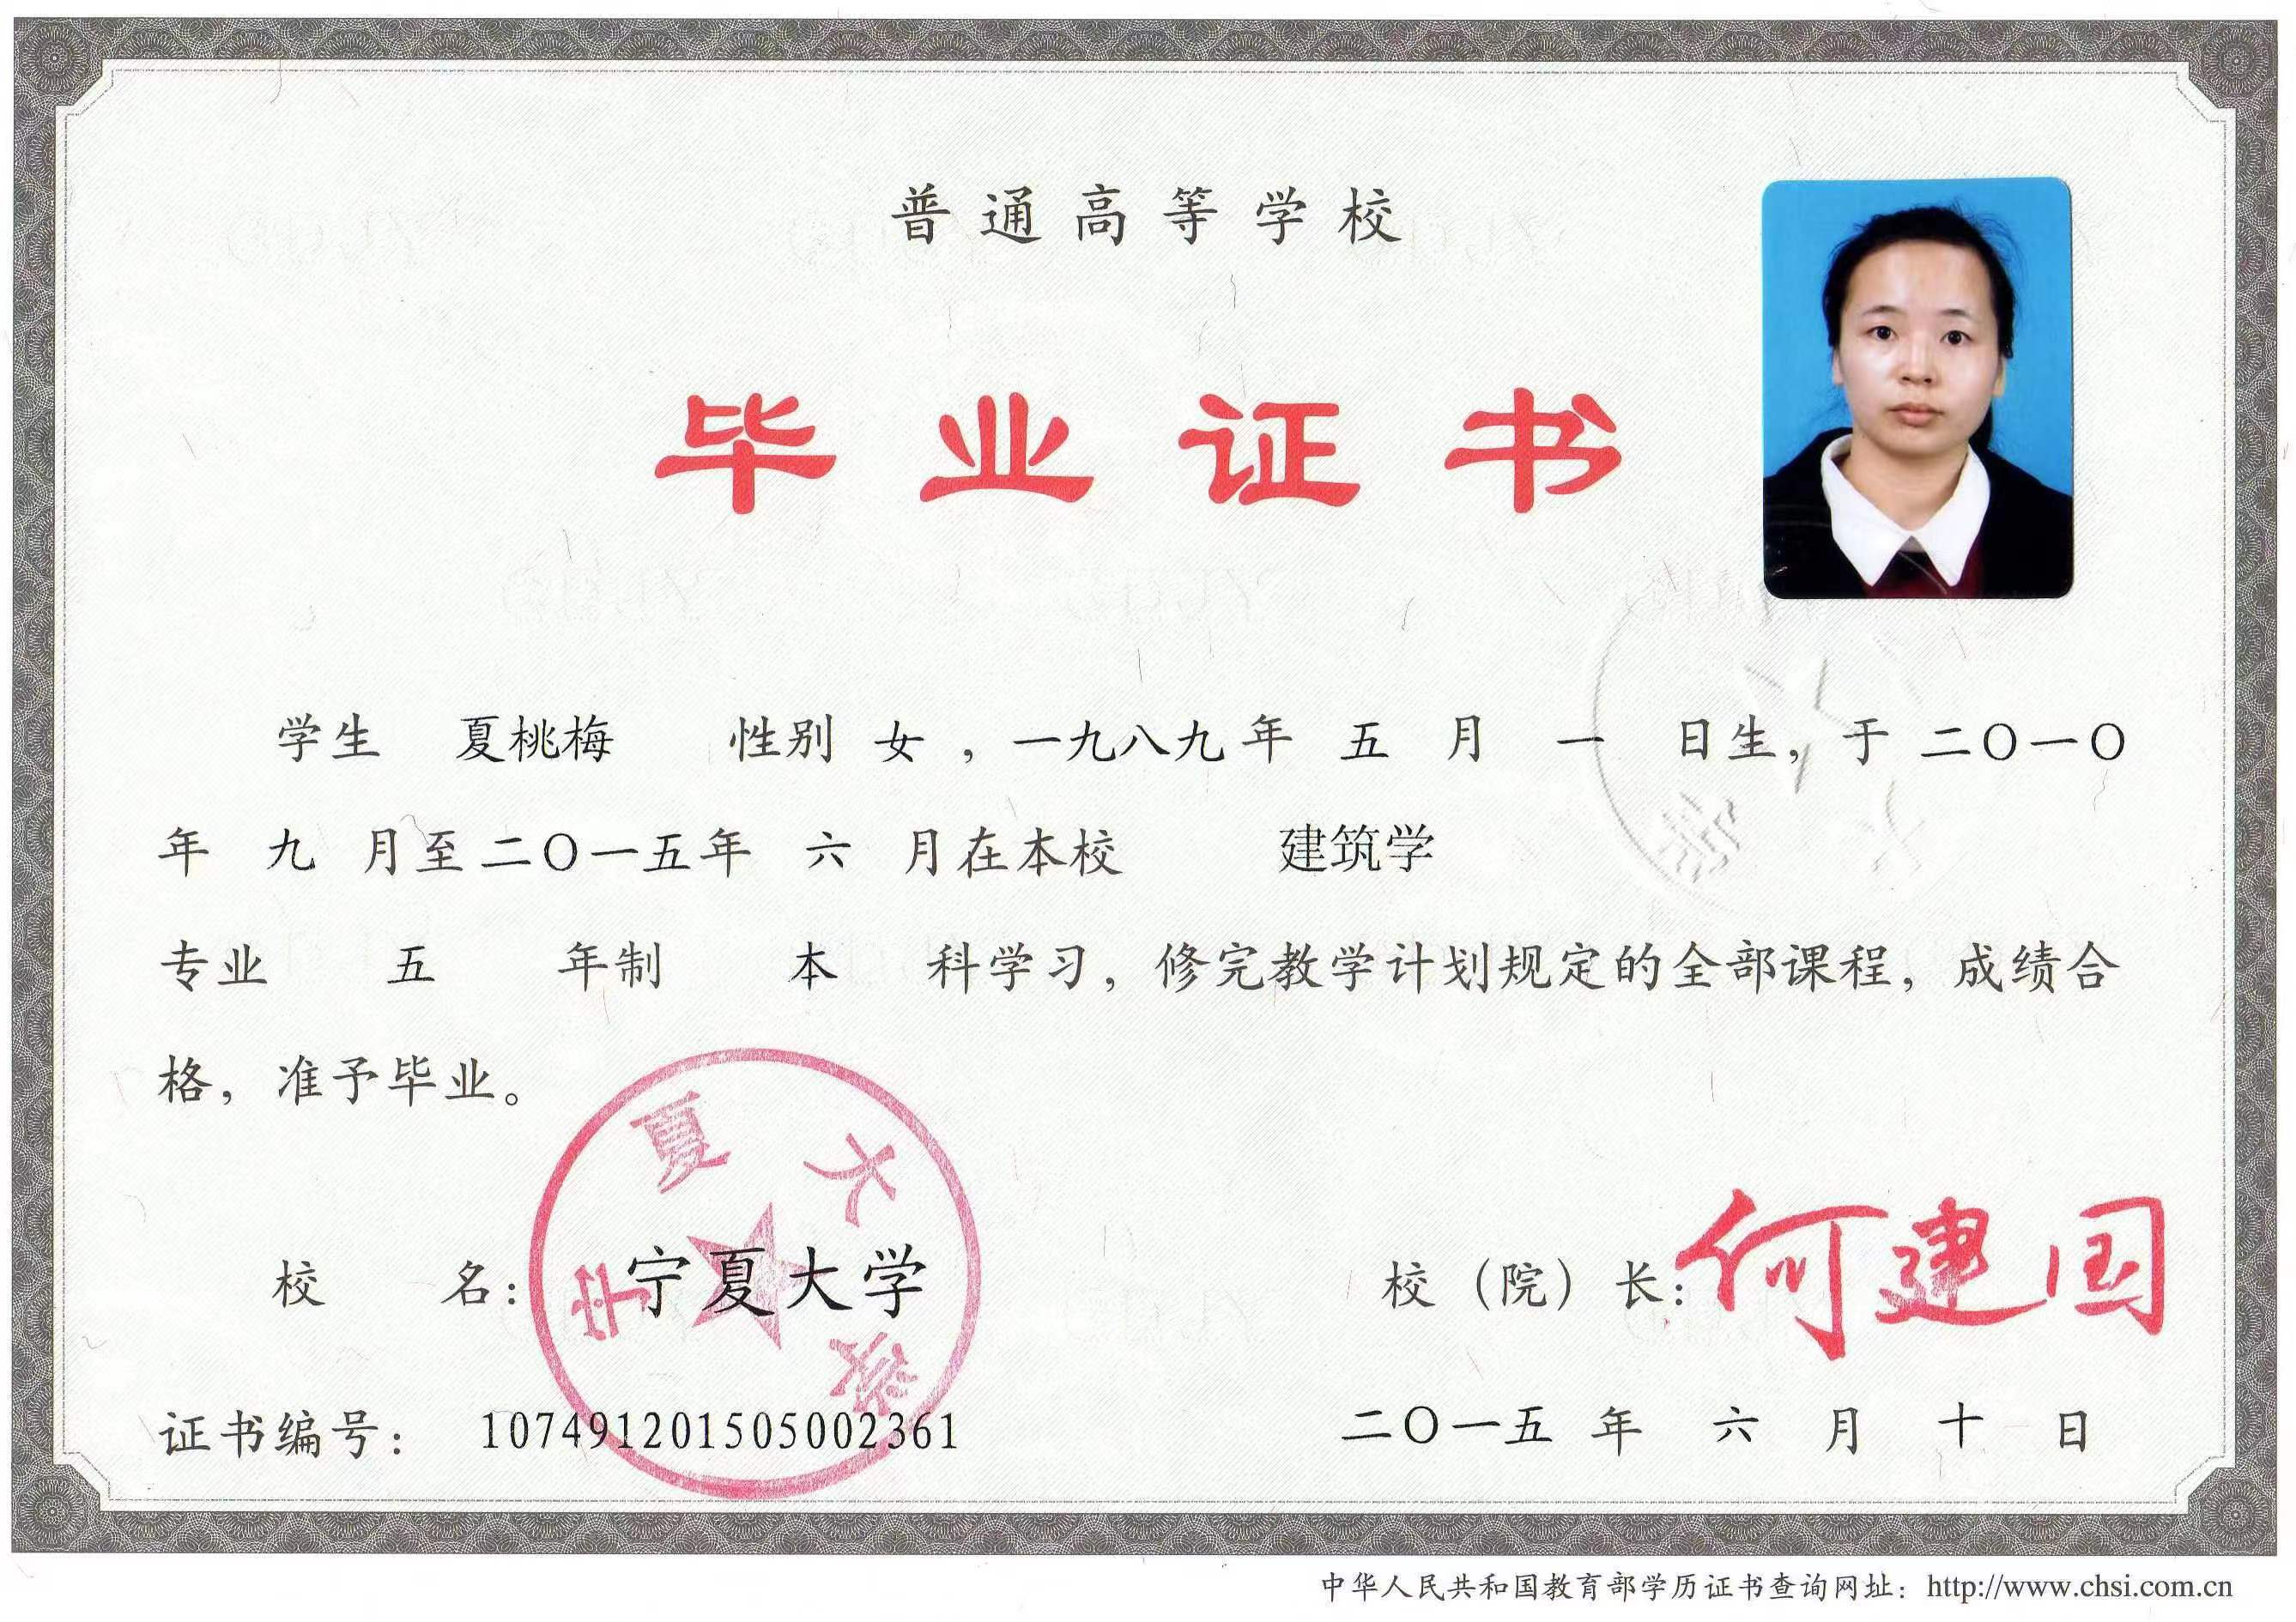 普通高等学校
毕业证书
学生 夏桃梅 性别 女 ，一九八九年 五 月 一 日生，于 二〇一〇
年 九 月至二〇一五年 六 月在本校 建筑学
专业 五 年制 本 科学习，修完教学计划规定的全部课程，成绩合
格，准予毕业。
宁夏大学
校 名： 宁夏大学
校（院）长：何建国
证书编号： 107491201505002361
二〇一五 年 六 月 十 日
中华人民共和国教育部学历证书查询网址：http://www.chsi.com.cn